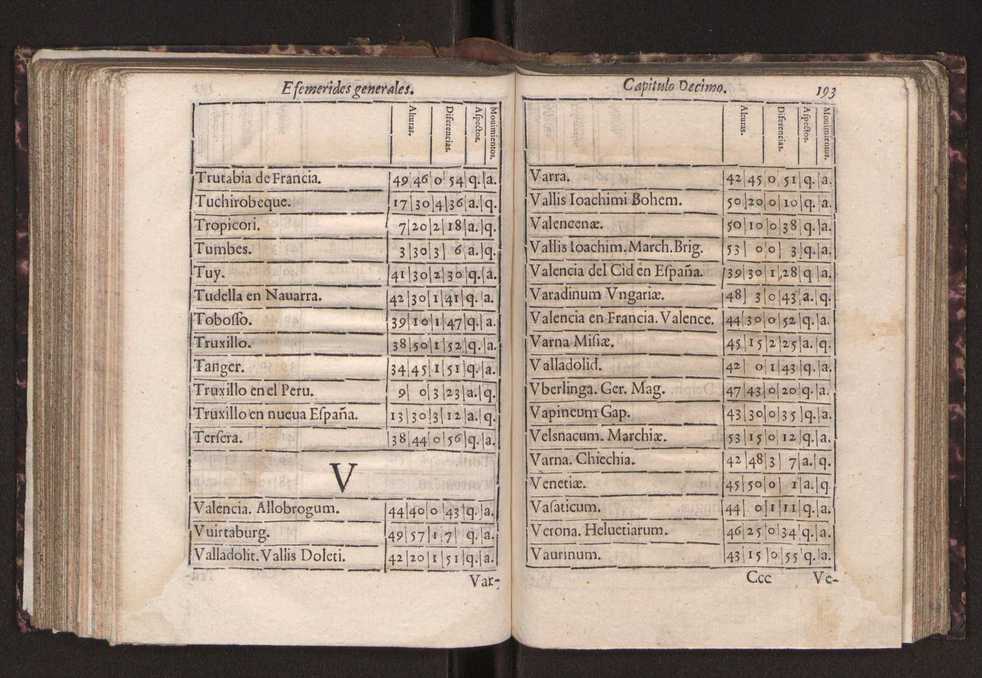 Efemerides generales.
Alturas. Diferencias. Aspectos. Mouimientos.
Trutabia de Francia. 49 46 0 54 q. a.
Tuchirobeque. 17 30 4 36 a. q.
Tropicori. 7 20 2 18 a. q.
Tumbes. 3 30 3 6 a. q.
Tuy. 41 30 2 30 q. a.
Tudella en Nauarra. 42 30 1 41 q. a.
Tobosso. 39 10 1 47 q. a.
Truxillo. 38 50 1 52 q. a.
Tanger. 34 45 1 51 q. a.
Truxillo en el Peru. 9 0 3 23 a. q.
Truxillo en nueua España. 13 30 3 12 a. q.
Tersera. 38 44 0 56 q. a.
V
Valencia. Allobrogum. 44 40 0 43 q. a.
Vuirtaburg. 49 57 1 7 q. a.
Valladolit. Vallis Doleti. 42 20 1 51 q. a.
Var-
Capitulo Decimo. 193
Alturas. Diferencias. Aspectos. Mouimientos.
Varra. 42 45 0 51 q. a.
Vallis Ioachimi Bohem. 50 20 0 10 q. a.
Valencenæ. 50 10 0 38 q. a.
Vallis Ioachim. March. Brig. 53 0 0 3 q. a.
Valencia del Cid en España. 39 30 1 28 q a.
Varadinum Vngariæ. 48 3 0 43 a. q.
Valencia en Francia. Valence. 44 30 0 52 q. a.
Varna Misiæ. 45 15 2 25 a. q.
Valladolid. 42 0 1 43 q. a.
Vberlinga. Ger. Mag. 47 43 0 20 q. a.
Vapineum Gap. 43 30 0 35 q. a.
Velsnacum. Marchiæ. 53 15 0 12 q. a.
Varna. Chiechia. 42 48 3 7 a. q.
Venetiæ. 45 50 0 1 a. q.
Vasaticum. 44 0 1 11 q. a.
Verona. Heluetiarum. 46 25 0 34 q. a.
Vaurinum. 43 15 0 55 q. a.
Ccc Ve-